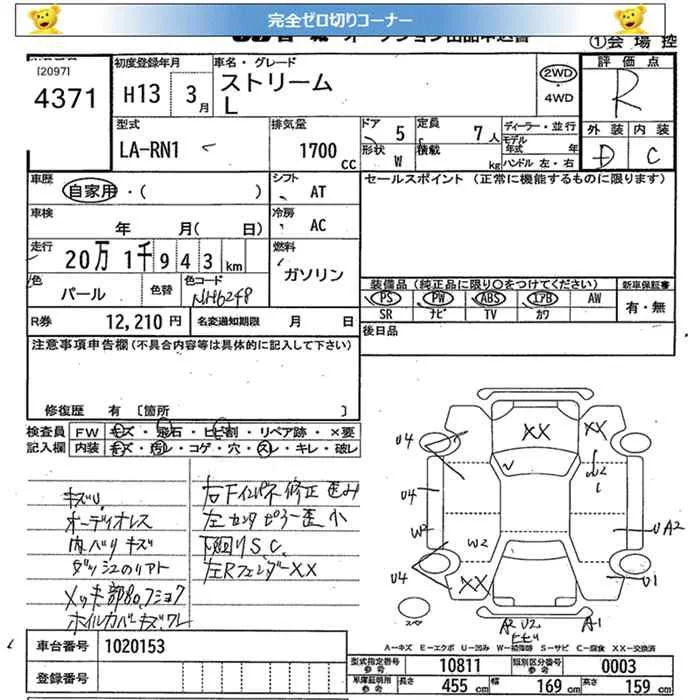 完全ゼロ切りコーナー
①会場控
[2097]
4371
初度登録年月
H13 3月
車名・グレード
ストリーム
L
2WD
・4WD
評価点
R
外装 内装
D C
型式
LA-RN1
排気量
1700 cc
ドア 5
定員 7人
形状 W
積載 kg
ディーラー・並行
モデル年式 年
ハンドル 左・右
車歴
自家用・( )
シフト AT
セールスポイント (正常に機能するものに限ります)
車検
年 月( 日)
冷房 AC
走行
20万1千943km
燃料
ガソリン
色
パール
色替
色コード
NH624P
装備品 (純正品に限り○をつけてください)
新車保証書
PS PW ABS エアB AW
SR ナビ TV カワ
有・無
R券 12,210円
名変通知期限 月 日
後日品
注意事項申告欄 (不具合内容等は具体的に記入して下さい)
修復歴 有 〔箇所 〕
検査員 FW キズ・飛石・ヒビ割・リペア跡・×要
記入欄 内装 キズ・汚レ・コゲ・穴・スレ・キレ・破レ
キズU.
オーディオレス
内ハリ キズ
メッキ部
ホイルカバーキズ ワレ
修正
下回り S.C.
左RフェンダーXX
U4 XX XX
U4 U2
W2 W2 U A2
U4 XX U1
スペア A2 U2 A1
ヒビ
A-キズ E-エクボ U-凹み W-補修跡 S-サビ C-腐食 XX-交換済
車台番号 1020153
登録番号
型式指定番号 参考 10811 類別区分番号 参考 0003
車庫証明用 参考 長さ 455 cm 幅 169 cm 高さ 159 cm